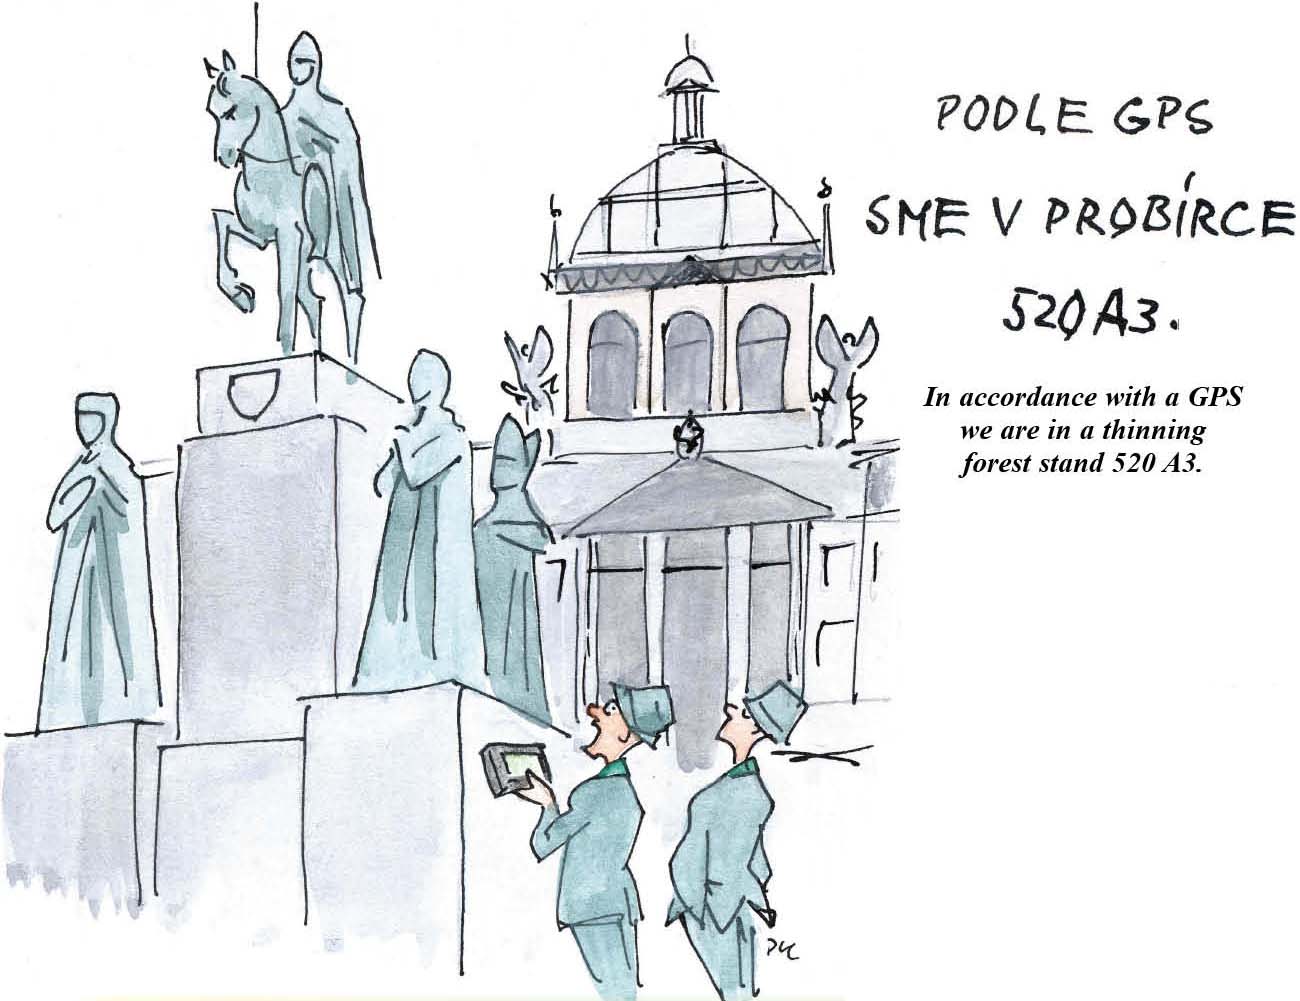 PODLE GPS
SME V PROBÍRCE
520 A3.
In accordance with a GPS
we are in a thinning
forest stand 520 A3.